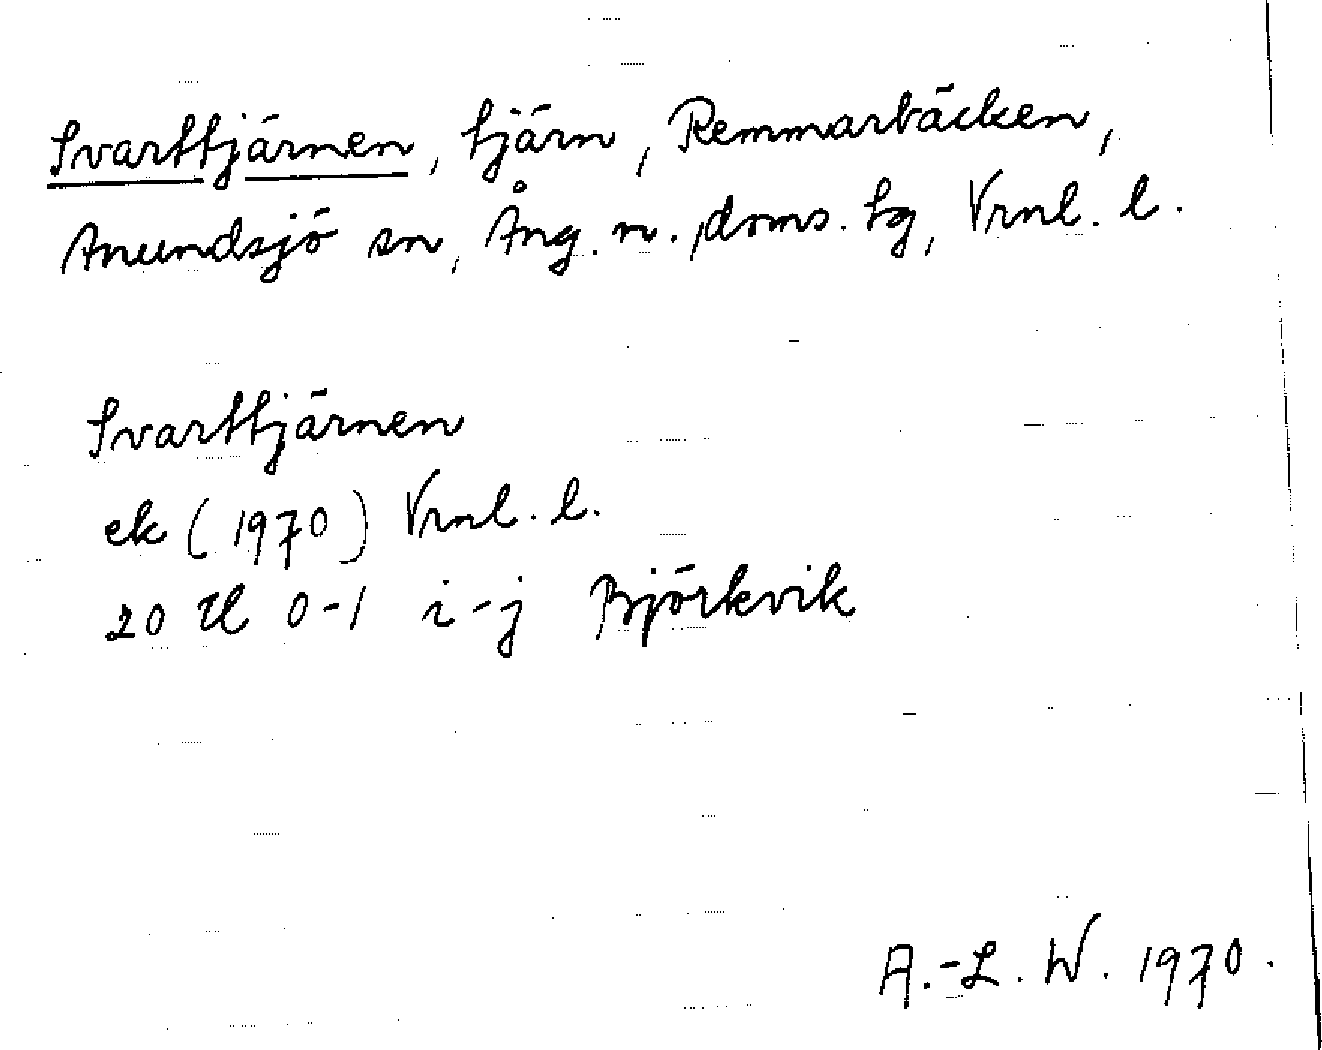 Svarttjärnen, tjärn, Remmarbäcken,
Anundsjö sn, Ång. n. doms. tg, Vrnl. l.
Svarttjärnen
ek (1970) Vrnl. l.
20 II 0-1 i-j Björkvik
A.-L. W. 1970.